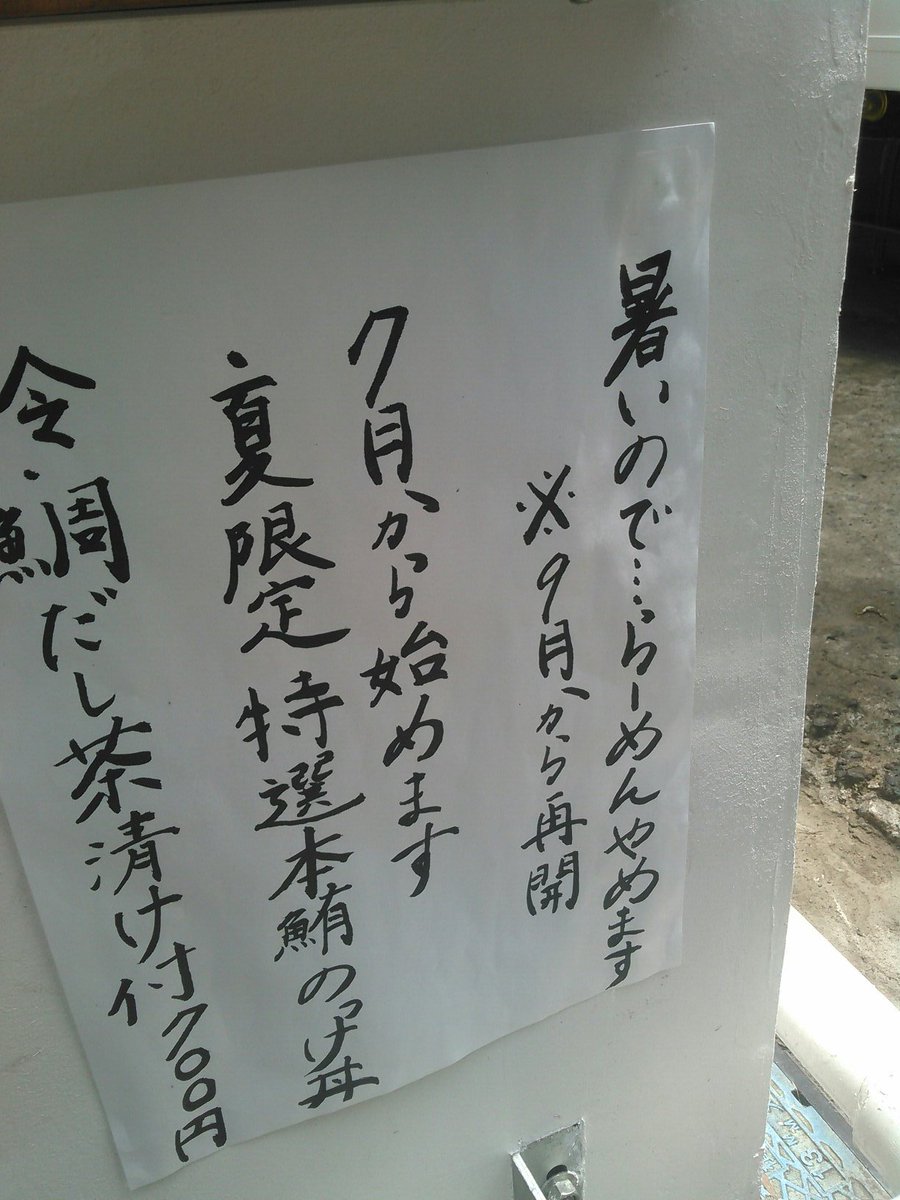 暑いので…らーめんやめます
※9月から再開
7月から始めます
・夏限定 特選本鮪のっけ丼
全・鯛だし茶清け付700円